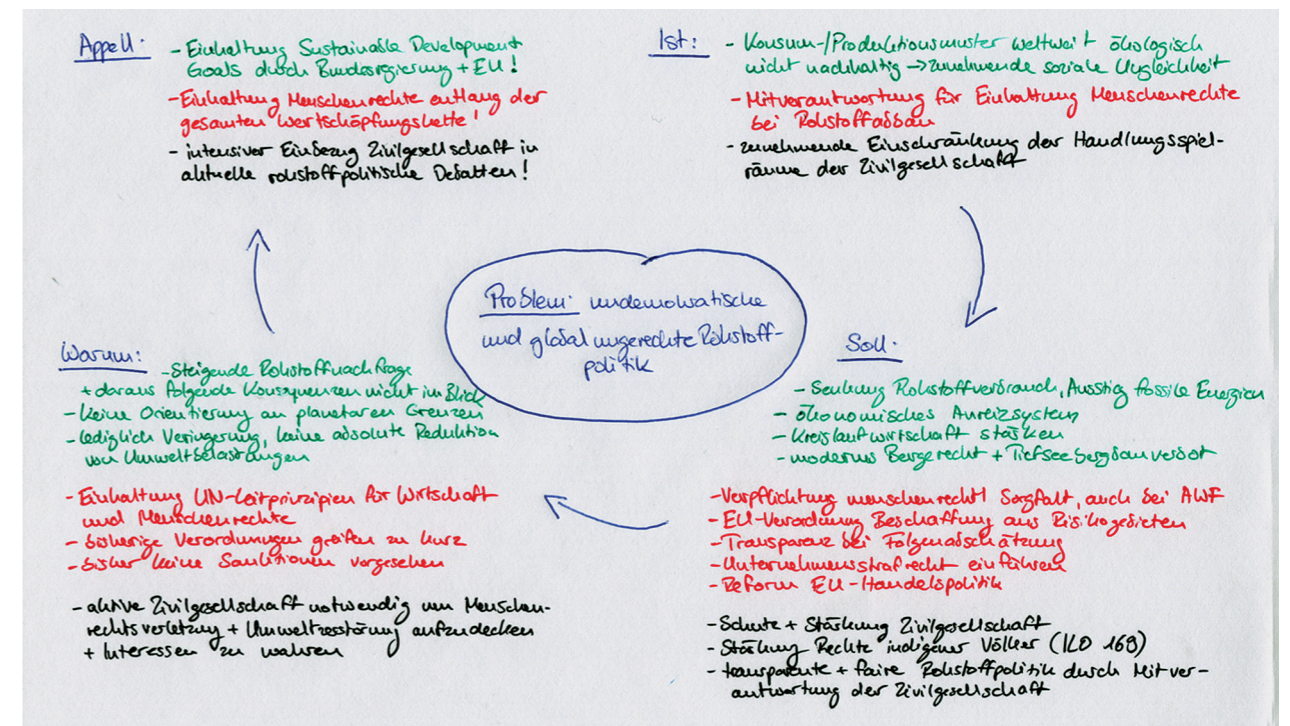 Appell:
- Einhaltung Sustainable Development
Goals durch Bundesregierung + EU!
- Einhaltung Menschenrechte entlang der
gesamten Wertschöpfungskette!
- intensiver Einbezug Zivilgesellschaft in
aktuelle rohstoffpolitische Debatten!
Ist:
- Konsum-/Produktionsmuster weltweit ökologisch
nicht nachhaltig → zunehmende soziale Ungleichheit
- Mitverantwortung für Einhaltung Menschenrechte
bei Rohstoffabbau
- zunehmende Einschränkung der Handlungsspiel-
räume der Zivilgesellschaft
Problem: undemokratische
und global ungerechte Rohstoff-
politik
Soll:
- Senkung Rohstoffverbrauch, Ausstieg fossile Energien
- ökonomisches Anreizsystem
- Kreislaufwirtschaft stärken
- modernes Bergerecht + Tiefseebergbauverbot
- Verpflichtung menschenrechtl Sorgfalt, auch bei AWF
- EU-Verordnung Beschaffung aus Risikogebieten
- Transparenz bei Folgenabschätzung
- Unternehmensstrafrecht einführen
- Reform EU-Handelspolitik
- Schutz + Stärkung Zivilgesellschaft
- Stärkung Rechte indigener Völker (ILO 169)
- transparente + faire Rohstoffpolitik durch Mitver-
antwortung der Zivilgesellschaft
Warum:
- Steigende Rohstoffnachfrage
+ daraus folgende Konsequenzen nicht im Blick
- keine Orientierung an planetaren Grenzen
- lediglich Veringerung, keine absolute Reduktion
von Umweltbelastungen
- Einhaltung UN-Leitprinzipien für Wirtschaft
und Menschenrechte
- bisherige Verordnungen greifen zu kurz
- bisher keine Sanktionen vorgesehen
- aktive Zivilgesellschaft notwendig um Menschen-
rechtsverletzung + Umweltzerstörung aufzudecken
+ Interessen zu wahren